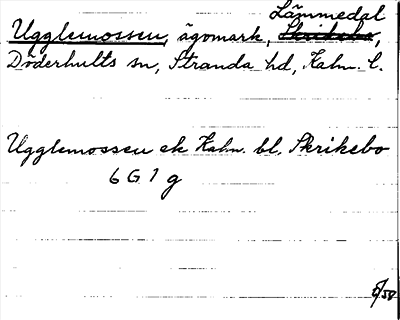 Lämmedal
Ugglemossen, ägomark, Skrikebo,
Döderhults sn, Stranda hd, Kalm. l.
Ugglemossen ek Kalm. bl. Skrikebo
6 G 1 g